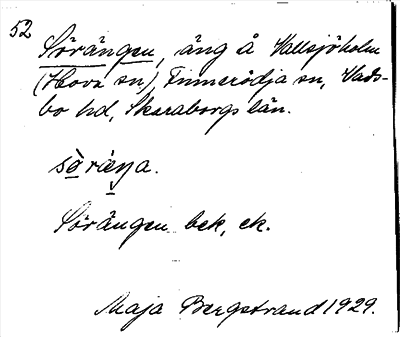 52
Sörängen, äng å Vallsjöholm
(Hova sn), Finnerödja sn, Vads-
bo hd, Skaraborgs län.
sö̀räŋa.
Sörängen bek, ek.
Maja Bergstrand 1929.